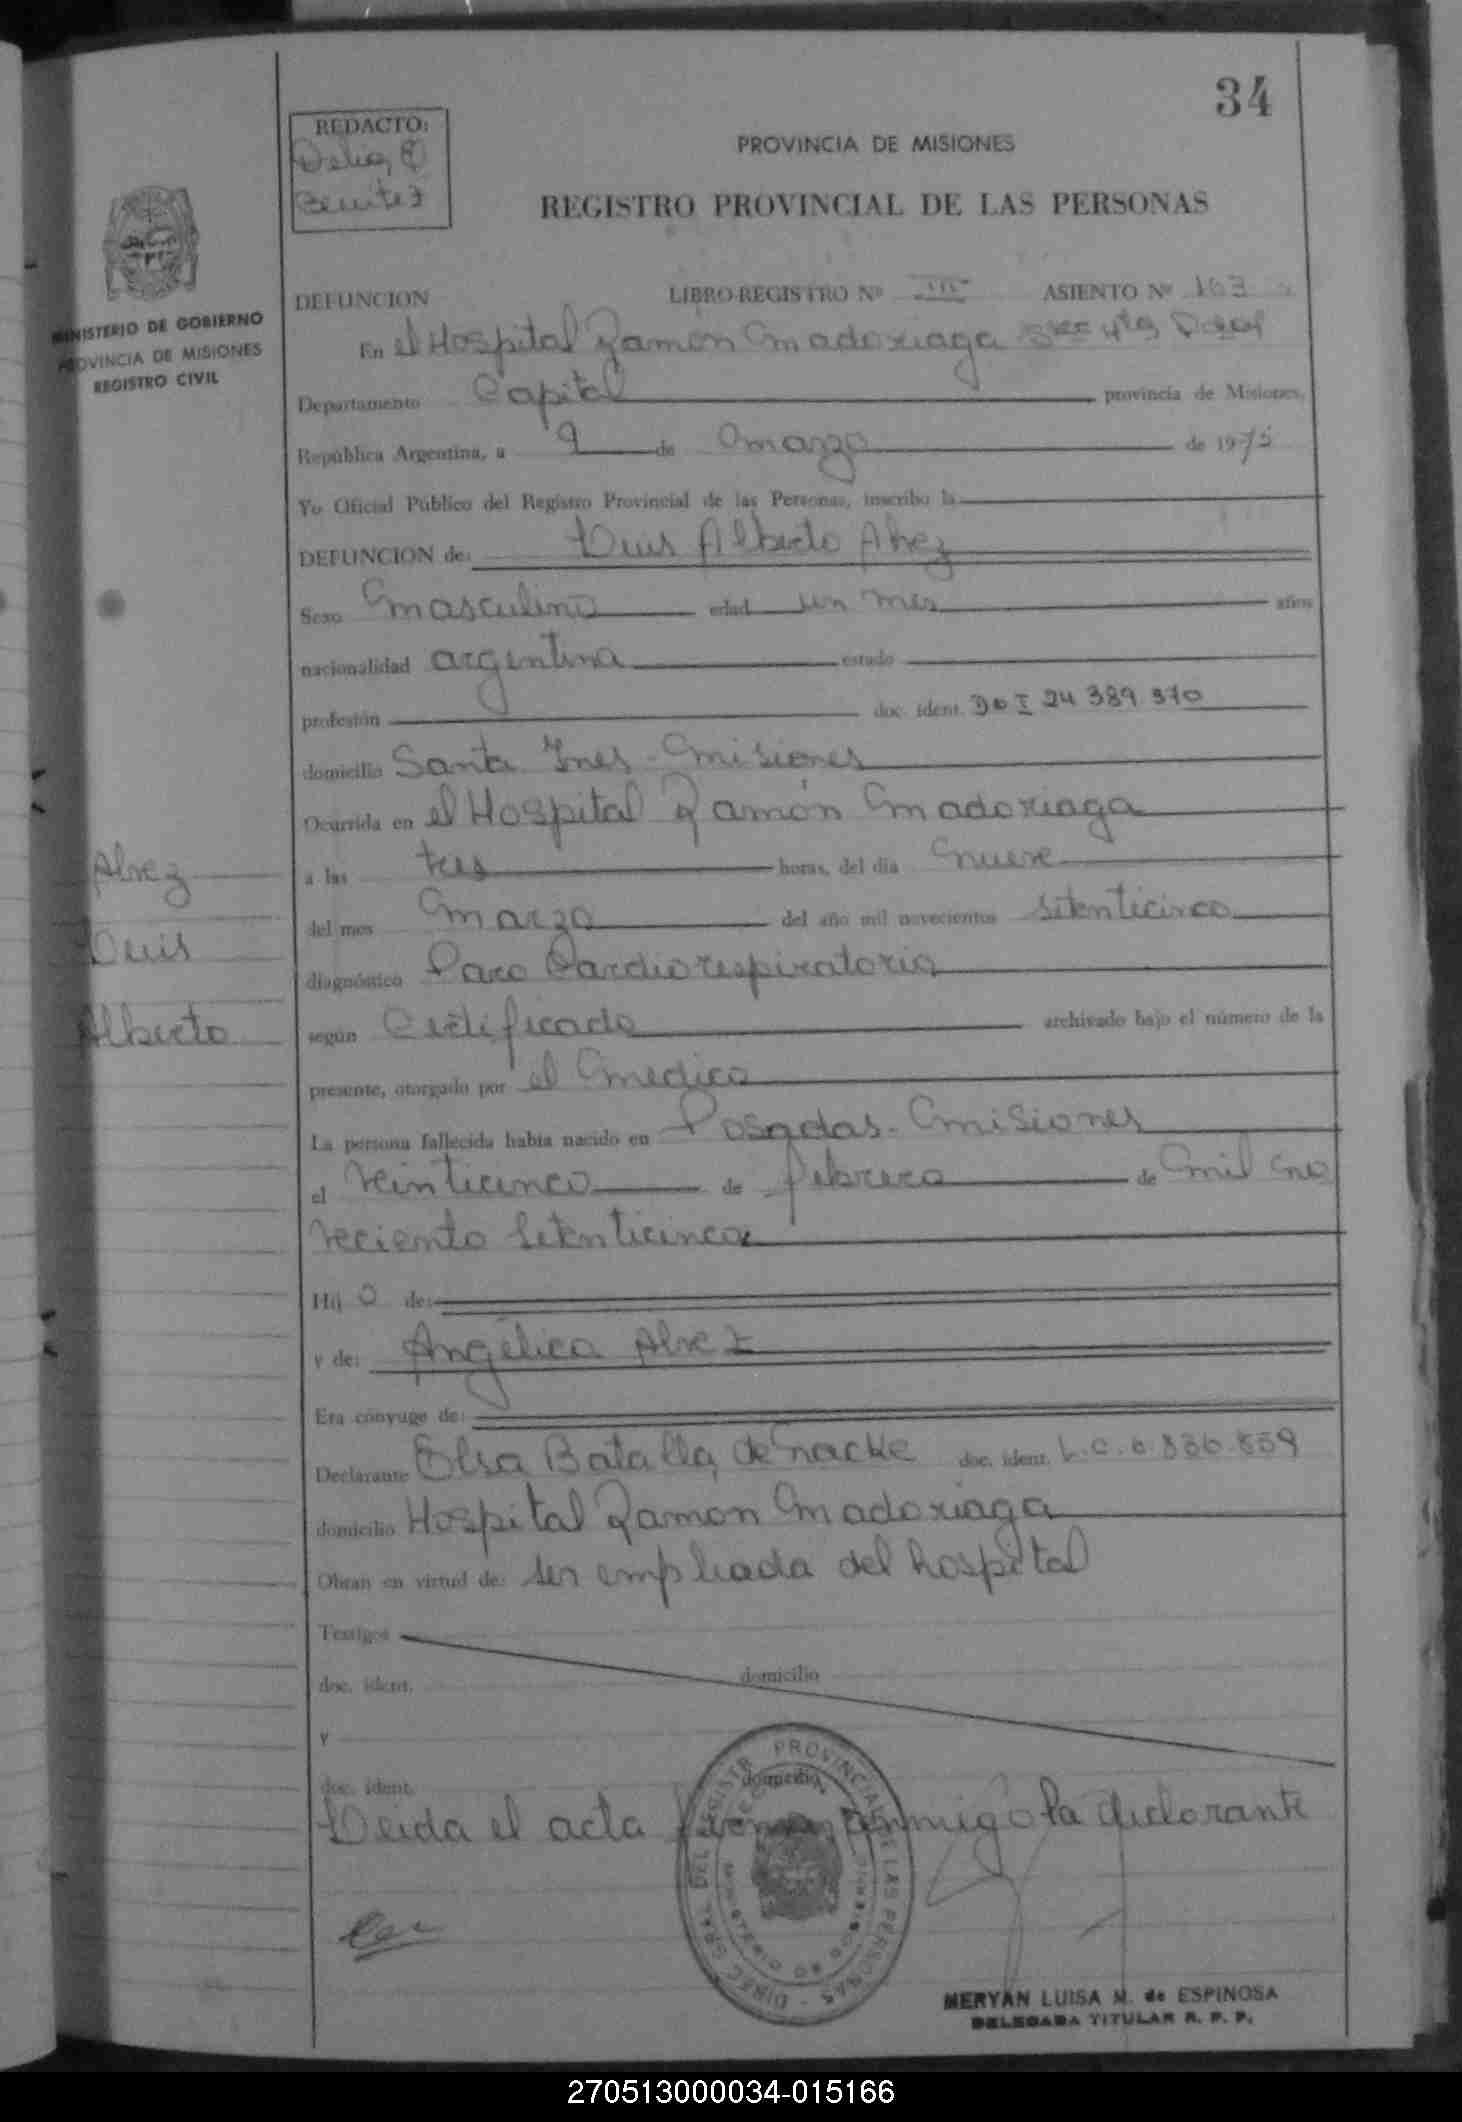 34
REDACTO:
Delia
Benitez
PROVINCIA DE MISIONES
REGISTRO PROVINCIAL DE LAS PERSONAS
MINISTERIO DE GOBIERNO
PROVINCIA DE MISIONES
REGISTRO CIVIL
DEFUNCION LIBRO-REGISTRO Nº III ASIENTO Nº 163
En el Hospital Ramon Madoriaga
Departamento Capital provincia de Misiones,
República Argentina, a 9 de Marzo de 1975
Yo Oficial Público del Registro Provincial de las Personas, inscribo la
DEFUNCION de: Luis Alberto Alvez
Sexo Masculino edad un mes años
nacionalidad argentina estado
profesión doc. ident. DOI 24 389 370
domicilio Santa Ines - Misiones
Ocurrida en el Hospital Ramón Madoriaga
a las tres horas, del día nueve
del mes Marzo del año mil novecientos setenticinco
diagnóstico Paro Cardiorespiratorio
según Certificado archivado bajo el número de la
presente, otorgado por el Medico
La persona fallecida había nacido en Posadas - Misiones
el veinticinco de febrero de Mil no
veciento setenticinco
Hij o de:
y de: Angélica Alvez
Era cónyuge de:
Declarante Elsa Batalla de Nacke doc. ident. L.C. 6.836.859
domicilio Hospital Ramon Madoriaga
Obran en virtud de: ser empleada del hospital
Testigos
doc. ident. domicilio
y
doc. ident. domicilio
Leida el acta firma conmigo la declorante
Alvez
Luis
Alberto
DIREC. GRAL. DEL REGISTR. PROVINCIAL DE LAS PERSONAS
MERYAN LUISA M. de ESPINOSA
DELEGADA TITULAR R. P. P.
270513000034-015166